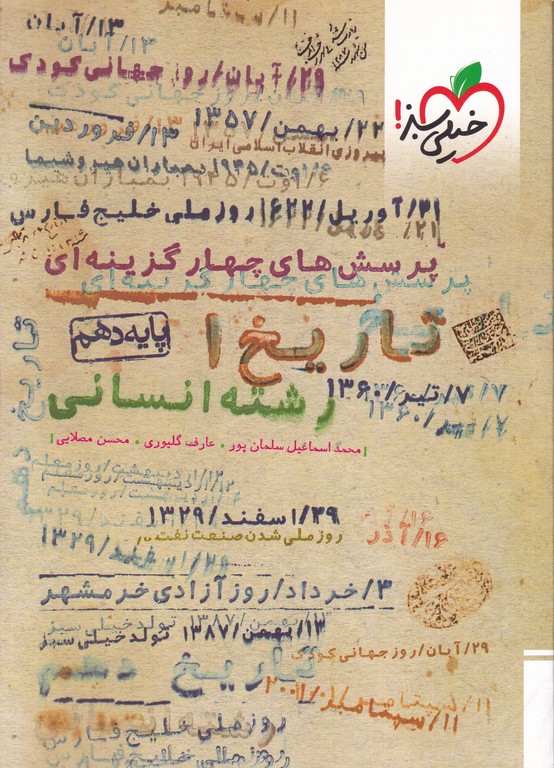 ۱۱/سپتامبر
۱۳/آبان
۱۳/آبان
۲۹/آبان/روز جهانی کودک
خیلی سبز!
۲۲/بهمن/۱۳۵۷
۱۳/فروردین
پیروزی انقلاب اسلامی ایران
۶/اوت/۱۹۴۵ بمباران هیروشیما
۲۱/آوریل/۱۶۲۲ روز ملی خلیج فارس
پرسش های چهار گزینه ای
پرسش های چهار گزینه ای
تاریخ ۱
پایه دهم
تاریخ
۷/تیر/۱۳۶۰
۷/تیر/۱۳۶۰
رشته انسانی
محمد اسماعیل سلمان پور • عارف گلپوری • محسن مصلایی
۱۲/اردیبهشت/روز معلم
۱۲/اردیبهشت/روز معلم
۲۹/اسفند/۱۳۲۹
روز ملی شدن صنعت نفت
۱۶/آذر
۲۹/اسفند/۱۳۲۹
۳/خرداد/روز آزادی خرمشهر
۱۳/بهمن/۱۳۸۷ تولد خیلی سبز
۲۹/آبان/روز جهانی کودک
تاریخ دهم
۱۱/سپتامبر/۲۰۰۱
۱۱/سپتامبر
روز ملی خلیج فارس
روز ملی خلیج فارس